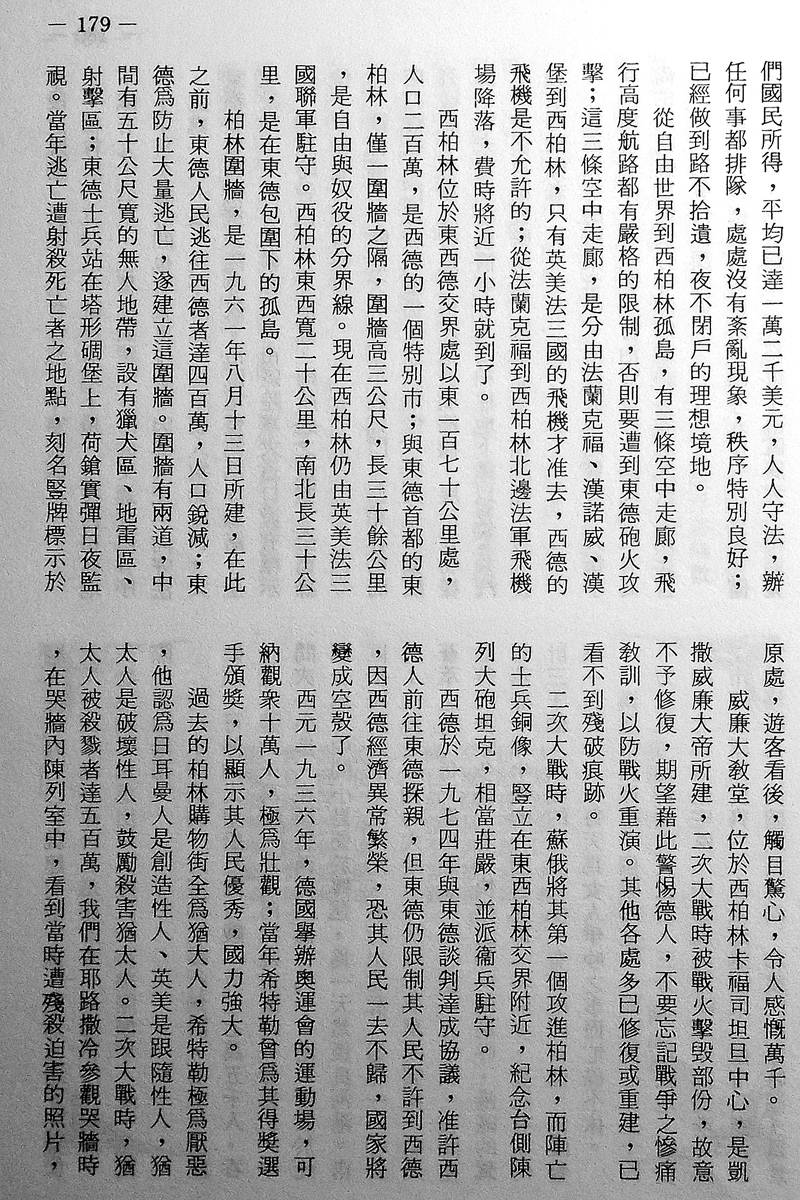 — 179 —
們國民所得，平均已達一萬二千美元，人人守法，辦
任何事都排隊，處處沒有紊亂現象，秩序特別良好；
已經做到路不拾遺，夜不閉戶的理想境地。
從自由世界到西柏林孤島，有三條空中走廊，飛
行高度航路都有嚴格的限制，否則要遭到東德砲火攻
擊；這三條空中走廊，是分由法蘭克福、漢諾威、漢
堡到西柏林，只有英美法三國的飛機才准去，西德的
飛機是不允許的；從法蘭克福到西柏林北邊法軍飛機
場降落，費時將近一小時就到了。
西柏林位於東西德交界處以東一百七十公里處，
人口二百萬，是西德的一個特別市；與東德首都的東
柏林，僅一圍牆之隔，圍牆高三公尺，長三十餘公里
，是自由與奴役的分界線。現在西柏林仍由英美法三
國聯軍駐守。西柏林東西寬二十公里，南北長三十公
里，是在東德包圍下的孤島。
柏林圍牆，是一九六一年八月十三日所建，在此
之前，東德人民逃往西德者達四百萬，人口銳減；東
德爲防止大量逃亡，遂建立這圍牆。圍牆有兩道，中
間有五十公尺寬的無人地帶，設有獵犬區、地雷區、
射擊區；東德士兵站在塔形碉堡上，荷鎗實彈日夜監
視。當年逃亡遭射殺死亡者之地點，刻名豎牌標示於
原處，遊客看後，觸目驚心，令人感慨萬千。
威廉大教堂，位於西柏林卡福司坦旦中心，是凱
撒威廉大帝所建，二次大戰時被戰火擊毀部份，故意
不予修復，期望藉此警惕德人，不要忘記戰爭之慘痛
教訓，以防戰火重演。其他各處多已修復或重建，已
看不到殘破痕跡。
二次大戰時，蘇俄將其第一個攻進柏林，而陣亡
的士兵銅像，豎立在東西柏林交界附近，紀念台側陳
列大砲坦克，相當莊嚴，並派衞兵駐守。
西德於一九七四年與東德談判達成協議，准許西
德人前往東德探親，但東德仍限制其人民不許到西德
，因西德經濟異常繁榮，恐其人民一去不歸，國家將
變成空殼了。
西元一九三六年，德國舉辦奧運會的運動場，可
納觀衆十萬人，極爲壯觀；當年希特勒曾爲其得獎選
手頒獎，以顯示其人民優秀，國力強大。
過去的柏林購物街全爲猶大人，希特勒極爲厭惡
，他認爲日耳曼人是創造性人、英美是跟隨性人，猶
太人是破壞性人，鼓勵殺害猶太人。二次大戰時，猶
太人被殺戮者達五百萬，我們在耶路撒冷參觀哭牆時
，在哭牆內陳列室中，看到當時遭殘殺迫害的照片，